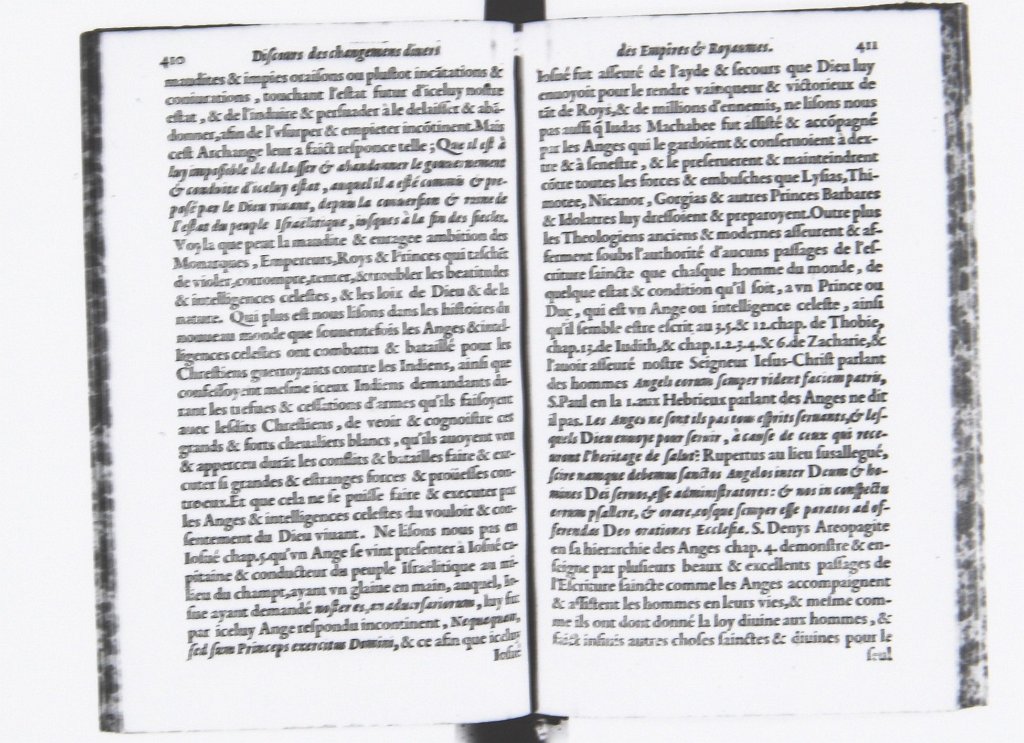 410 Discours des changemens divers
maudites & impies oraisons ou plustot incãtations &
coniurations, touchant l'estat futur d'iceluy nostre
estat, & de l'induire & persuader à le delaisser & abã-
donner, afin de l'vsurper & empieter incõtinent. Mais
cest Archange leur a faict responce telle; Que il est à
luy impossible de delaisser & abandonner le gouvernement
& conduite d'iceluy estat, auquel il a esté commis & pre-
posé par le Dieu viuant, depuis la conuersion & ruine de
l'estat du peuple Israelitique, iusques à la fin des siecles.
Voyla que peut la maudite & enragee ambition des
Monarques, Empereurs, Roys & Princes qui taschẽt
de violer, corrompre, tenter, & troubler les beatitudes
& intelligences celestes, & les loix de Dieu & de la
nature. Qui plus est nous lisons dans les histoires du
nouueau monde que souuentesfois les Anges & intel-
ligences celestes ont combattu & bataillé pour les
Chrestiens guerroyants contre les Indiens, ainsi que
confessoyent mesme iceux Indiens demandants du-
rant les trefues & cessations d'armes qu'ils faisoyent
auec lesdits Chrestiens, de veoir & cognoistre ces
grands & forts cheualiers blancs, qu'ils auoyent veu
& apperceu durãt les conflits & batailles faire & exe-
cuter si grandes & estranges forces & proüesses con-
tre eux. Et que cela ne se puisse faire & executer par
les Anges & intelligences celestes du vouloir & con-
sentement du Dieu viuant. Ne lisons nous pas en
Iosué chap. 5. qu'vn Ange se vint presenter à Iosué ca-
pitaine & conducteur du peuple Israelitique au mi-
lieu du champt, ayant vn glaiue en main, auquel, Io-
sue ayant demandé noster es, an aduersariorum, luy fut
par iceluy Ange respondu incontinent, Nequaquam,
sed sum Princeps exercitus Domini, & ce afin que iceluy
Iosué
des Empires & Royaumes. 411
Iosué fut asseuré de l'ayde & secours que Dieu luy
enuoyoit pour le rendre vainqueur & victorieux de
tãt de Roys, & de millions d'ennemis, ne lisons nous
pas aussi q̃ Iudas Machabee fut assisté & accõpagné
par les Anges qui le gardoient & conseruoient à dex-
tre & à senestre, & le preseruerent & mainteindrent
cõtre toutes les forces & embusches que Lysias, Thi-
motee, Nicanor, Gorgias & autres Princes Barbares
& Idolatres luy dressoient & preparoyent. Outre plus
les Theologiens anciens & modernes asseurent & af-
ferment soubs l'authorité d'aucuns passages de l'es-
criture saincte que chasque homme du monde, de
quelque estat & condition qu'il soit, a vn Prince ou
Duc, qui est vn Ange ou intelligence celeste, ainsi
qu'il semble estre escrit au 3. 5. & 12. chap. de Thobie,
chap. 13. de Iudith, & chap. 1. 2. 3. 4. & 6. de Zacharie, &
l'auoir asseuré nostre Seigneur Iesus-Christ parlant
des hommes Angeli eorum semper vident faciem patris,
S. Paul en la 1. aux Hebrieux parlant des Anges ne dit
il pas. Les Anges ne sont ils pas tous esprits seruants, & les-
quels Dieu enuoye pour seruir, à cause de ceux qui rece-
uront l'heritage de salut: Rupertus au lieu susallegué,
scire namque debemus sanctos Angelos inter Deum & ho-
mines Dei seruos, esse administratores: & nos in conspectu
eorum psallere, & orare, eosque semper esse paratos ad of-
ferendas Deo orationes Ecclesiæ. S. Denys Areopagite
en sa hierarchie des Anges chap. 4. demonstre & en-
seigne par plusieurs beaux & excellents passages de
l'Escriture saincte comme les Anges accompaignent
& assistent les hommes en leurs vies, & mesme com-
me ils ont dont donné la loy diuine aux hommes, &
faict infinis autres choses sainctes & diuines pour le
seul